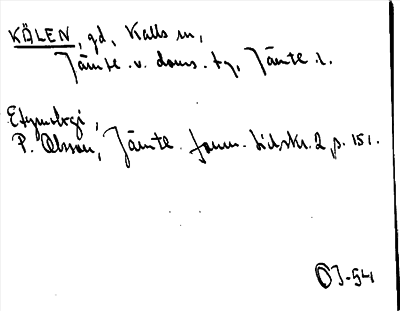 KÄLEN, gd, Kalls sn,
Jämtl. v. doms. tg, Jämtl. l.
Etymologi,
P. Olsson, Jämtl. fornm. tidskr. 2, p. 151.
OJ-54